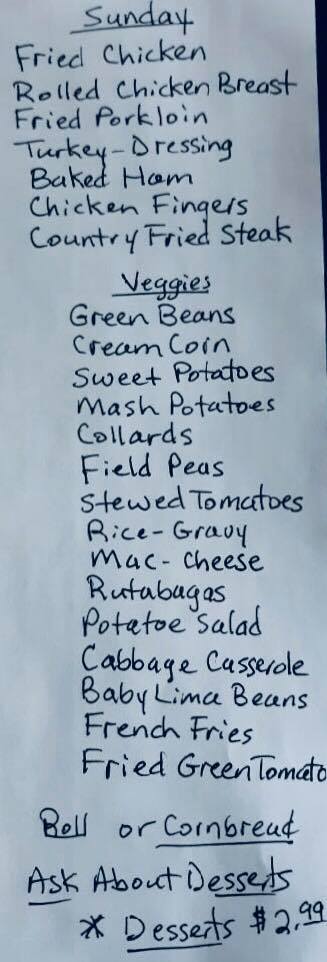 Sunday
Fried Chicken
Rolled Chicken Breast
Fried Porkloin
Turkey-Dressing
Baked Ham
Chicken Fingers
Country Fried Steak
Veggies
Green Beans
Cream Coin
Sweet Potatoes
Mash Potatoes
Collards
Field Peas
Stewed Tomatoes
Rice-Gravy
Mac-Cheese
Rutabagas
Potatoe Salad
Cabbage Casserole
Baby Lima Beans
French Fries
Fried Green Tomato
Roll or Cornbread
Ask About Desserts
* Desserts $2.99